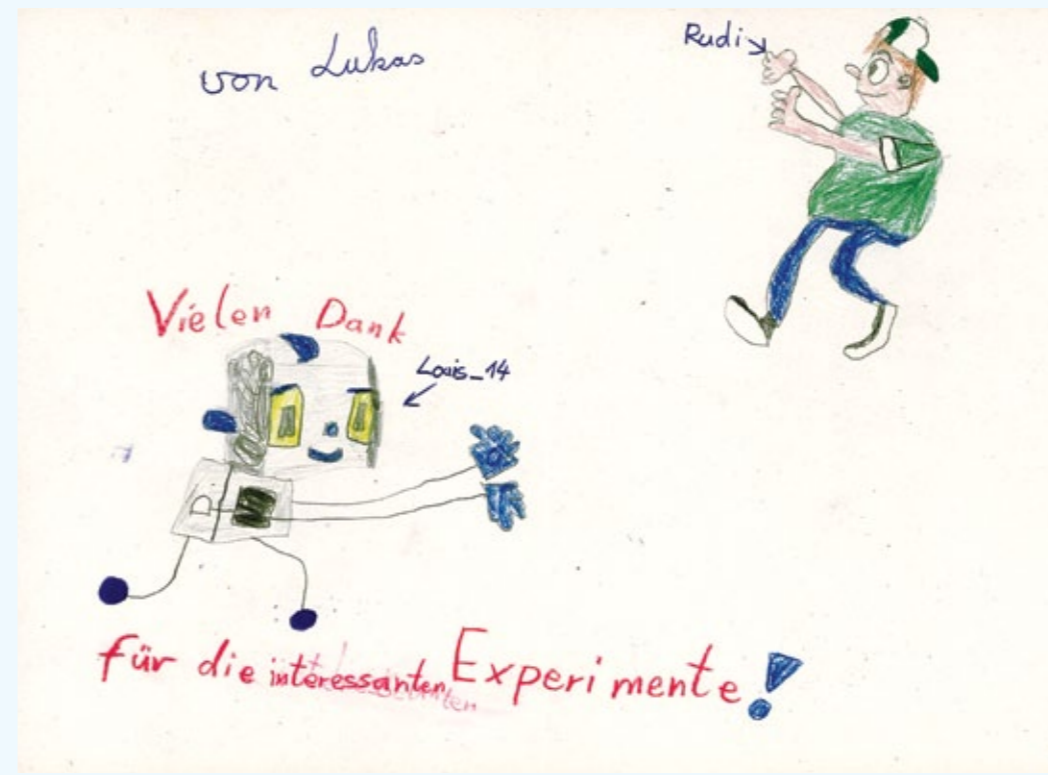 von Lukas
Rudi
Vielen Dank
Louis_14
für die interessanten Experimente!